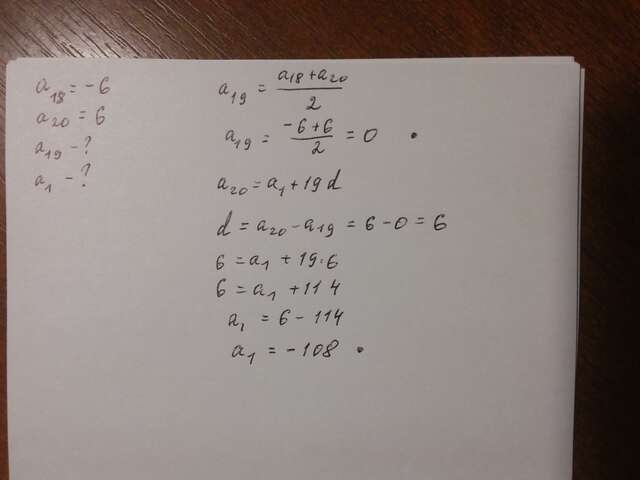 a₁₈ = -6
a₂₀ = 6
a₁₉ - ?
a₁ - ?
a₁₉ = (a₁₈ + a₂₀)/2
a₁₉ = (-6 + 6)/2 = 0 .
a₂₀ = a₁ + 19d
d = a₂₀ - a₁₉ = 6 - 0 = 6
6 = a₁ + 19·6
6 = a₁ + 114
a₁ = 6 - 114
a₁ = -108 .